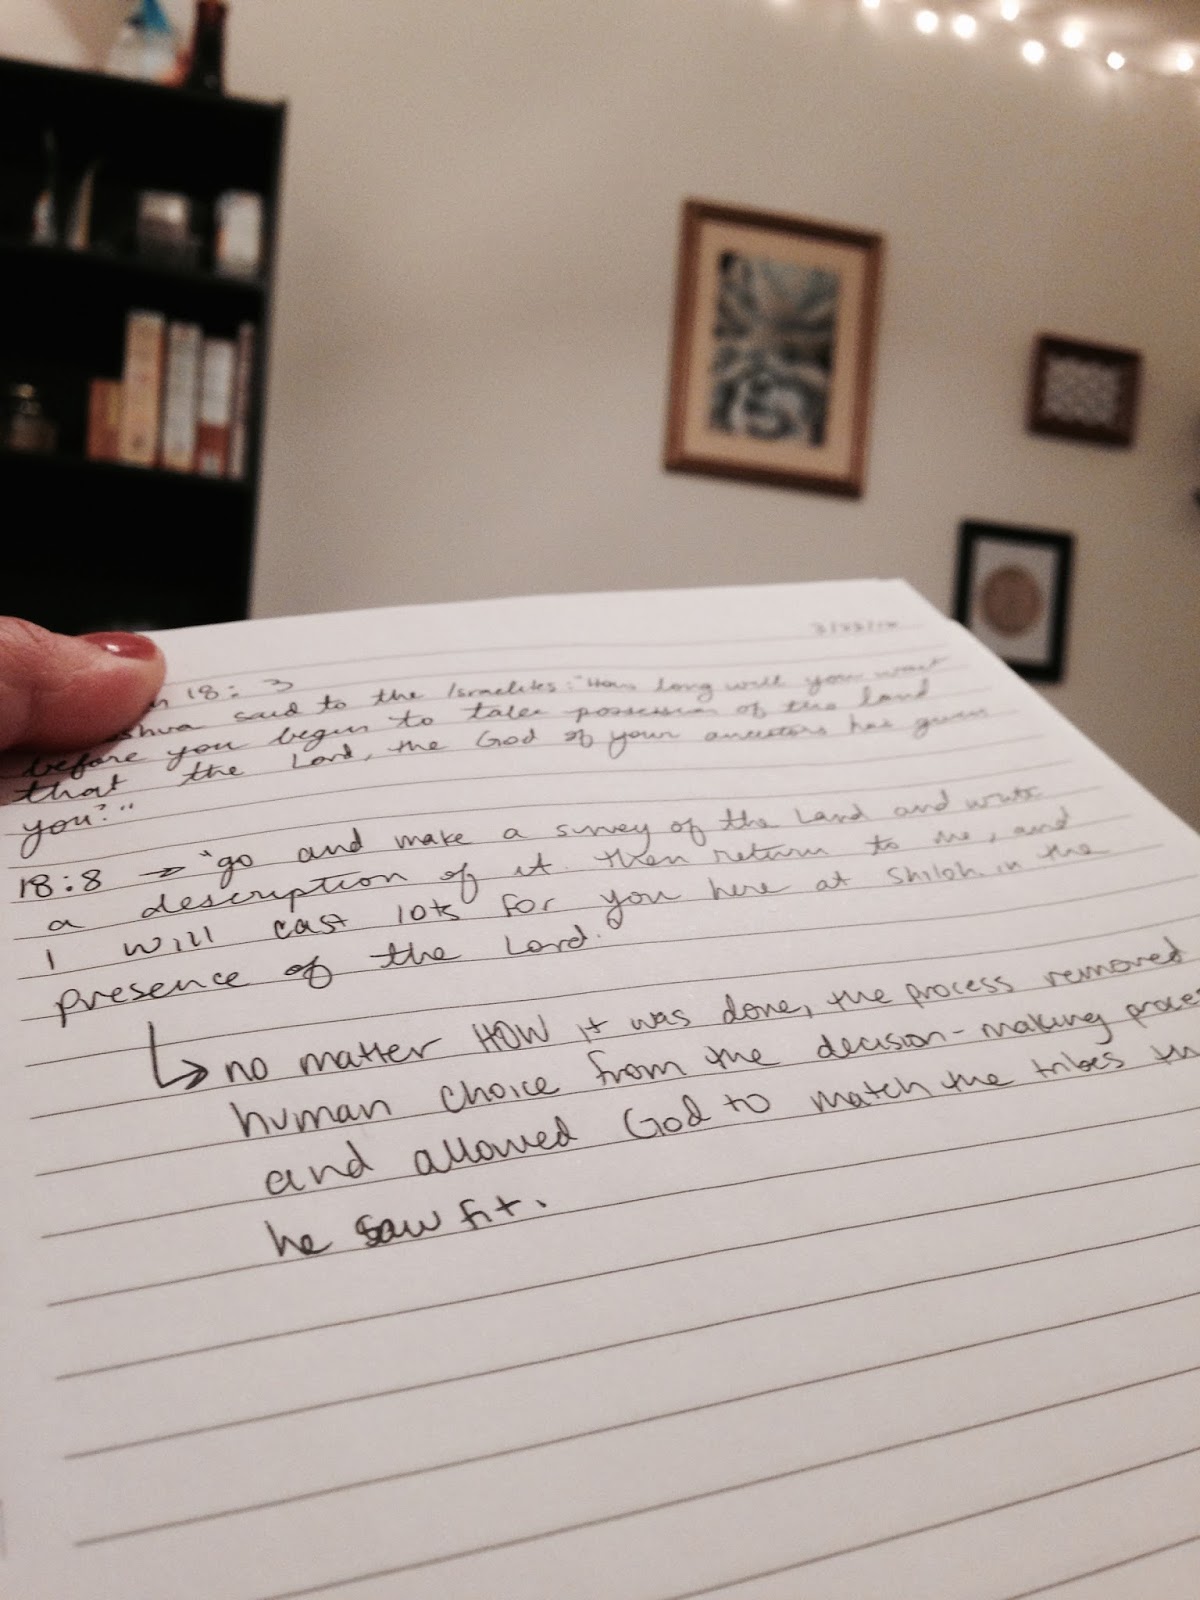 18:3
said to the Israelites: "How long will you wait
before you begin to take possession of the land
that the Lord, the God of your ancestors has given
you?"
18:8 → "go and make a survey of the Land and write
a description of it. Then return to me, and
I will cast lots for you here at Shiloh in the
presence of the Lord."
↳ no matter HOW it was done, the process removed
human choice from the decision-making
and allowed God to match the tribes
he saw fit.